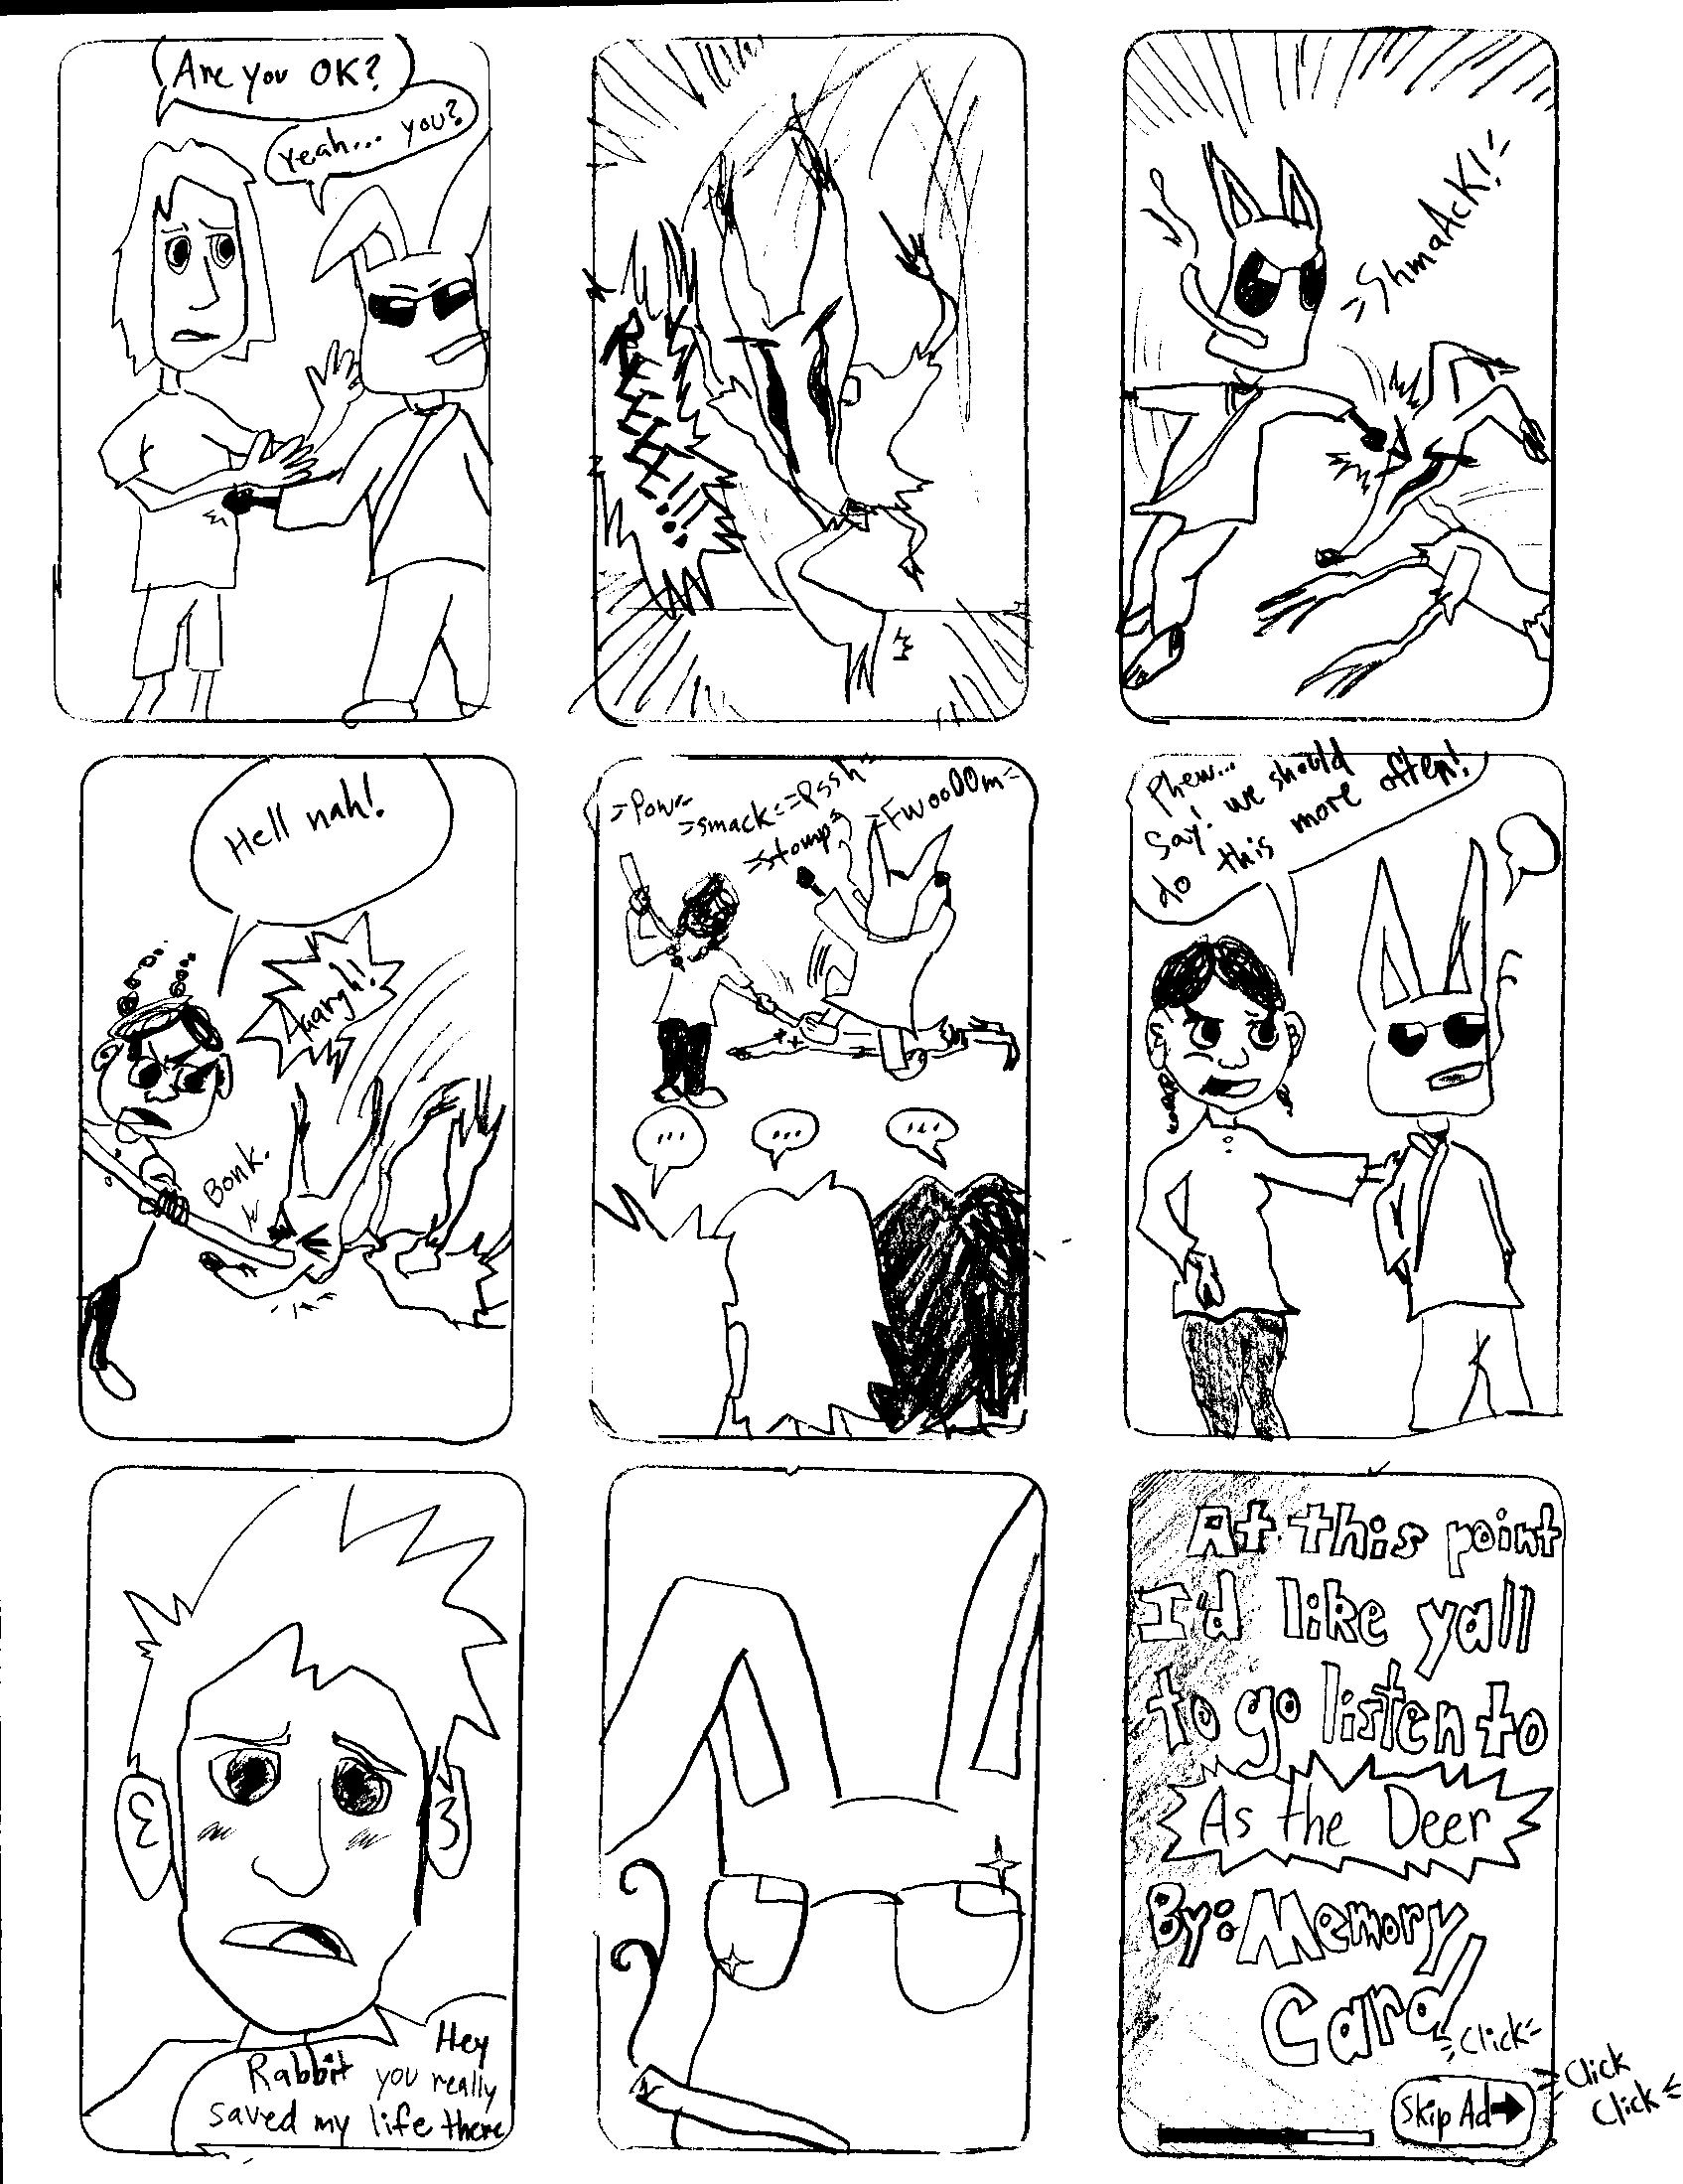 Are you OK?
Yeah... you?
REEEEE!!!
ShmaAcK!
Hell nah!
Auargh!!
Bonk.
Pow
smack
Pssh
stomp
FwooOOm
...
...
...
Phew...
Say! we should
do this more often!
Hey
Rabbit you really
saved my life there
At this point
I'd like yall
to go listen to
As the Deer
By: Memory
Card
Click
Click
Click
Skip Ad